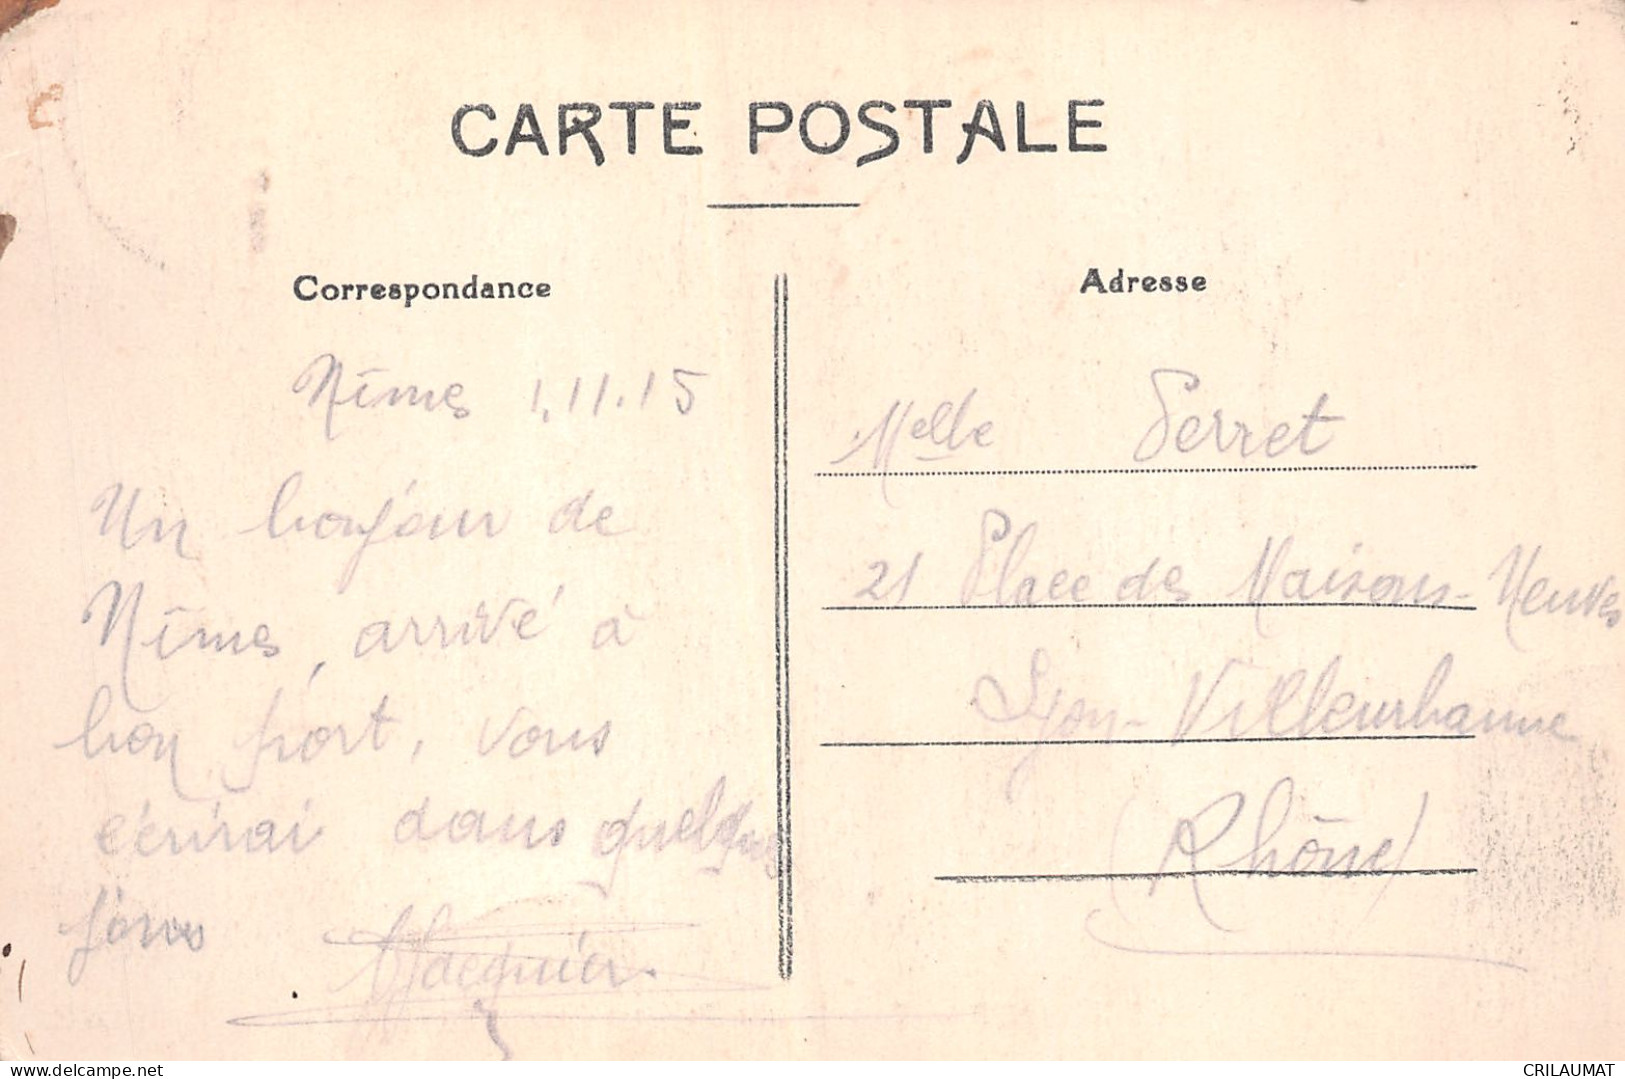 CARTE POSTALE
Correspondance
Nîmes 1.11.15
Un bonjour de
Nîmes, arrivé à
bon port, vous
écrirai dans quelques
jours
Jacquier
Adresse
Melle Perret
21 Place des Maisons-Neuves
Lyon-Villeurbanne
(Rhône)
delcampe.net
CRILAUMAT